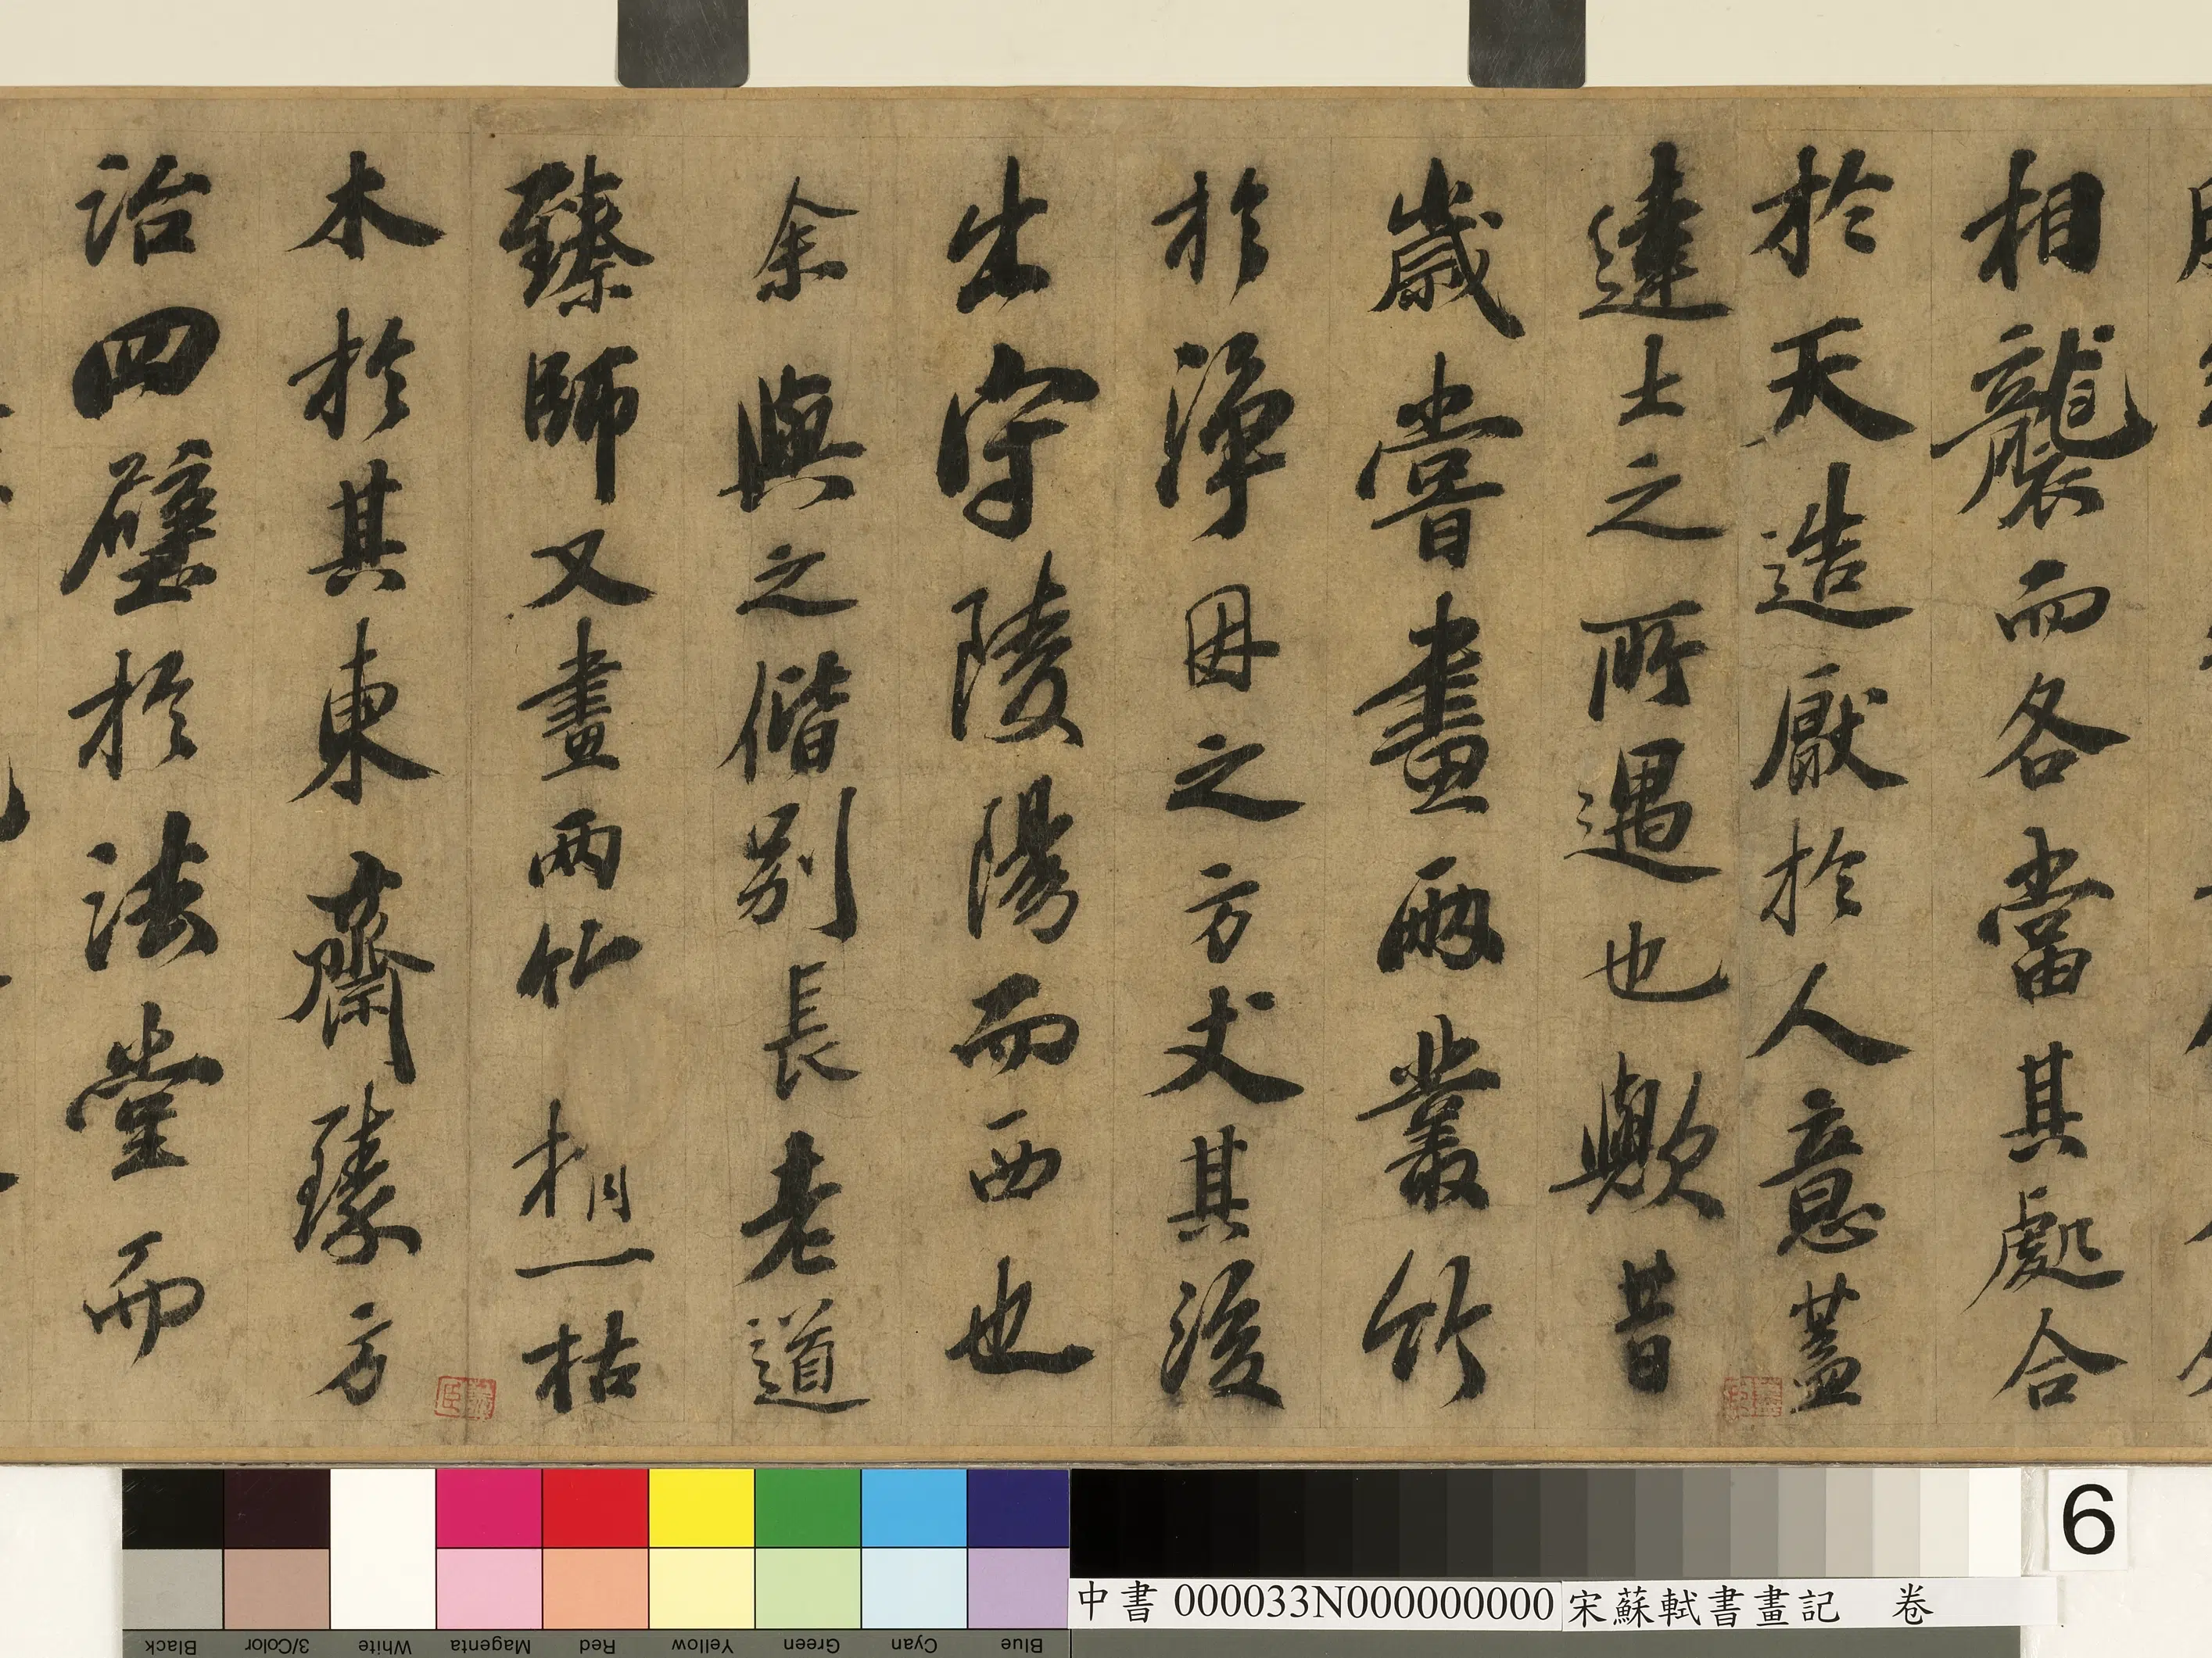 相襲而各當其處合
於天造厭於人意蓋
達士之所遇也歟昔
歲嘗畫兩叢竹
於淨因之方丈其後
出守陵陽而西也
余與之偕別長老道
臻師又畫兩竹梢一枯
木於其東齋臻方
治四壁於法堂而
6
中書 000033N000000000 宋蘇軾書畫記 卷
Blue
Cyan
Green
Yellow
Red
Magenta
White
3/Color
Black